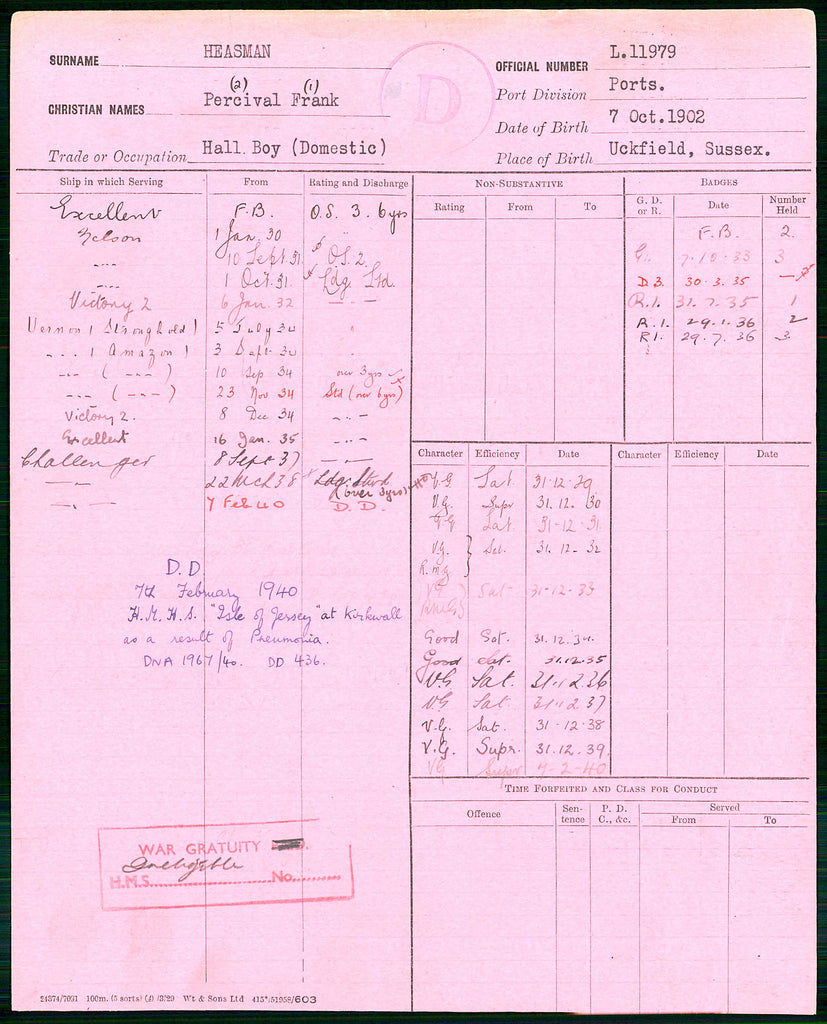 SURNAME HEASMAN
(2) (1)
CHRISTIAN NAMES Percival Frank
Trade or Occupation Hall Boy (Domestic)
D
OFFICIAL NUMBER L.11979
Port Division Ports.
Date of Birth 7 Oct.1902
Place of Birth Uckfield, Sussex.
Ship in which Serving From Rating and Discharge
Excellent F.B. O.S. 3. 6 yrs
Nelson 1 Jan. 30 "
---- 10 Sept 31 OS. 2.
---- 1 Oct. 31. Ldg. Std.
Victory 2 6 Jan. 32 — . —
Vernon (Stronghold) 5 July 34 "
--- (Amazon) 3 Sept. 34
--- ( --- ) 10 Sep 34 over 3 yrs
--- ( --- ) 23 Nov 34 Std (over 6 yrs)
Victory 2. 8 Dec 34 — .. —
Excellent 16 Jan. 35 — .. —
Challenger 8 Sept 37 — .. —
— .. — 22 Mch 38 Ldg. Stwd (over 3 yrs)
— . — 7 Feb 40 D.D.
D.D.
7th February 1940
H.M.H.S. "Isle of Jersey" at Kirkwall
as a result of Pneumonia.
DNA 1967/40. DD 436.
WAR GRATUITY
Ineligible
H.M.S. No.
24374/7031 100m. (5 sorts) (.0 /3/29 Wt & Sons Ltd 415*/51958/603
NON-SUBSTANTIVE
Rating From To
BADGES
G. D. or R. Date Number Held
F.B. 2.
G. 7.10.33 3
D 3. 30.3.35 —
R.1. 31.7.35 1
R.1. 29.1.36 2
R1. 29.7.36 3.
Character Efficiency Date Character Efficiency Date
V.G Sat. 31-12-29
V.G. Supr 31.12.30
V.G Sat. 31-12-31
V.G. } Sat. 31.12.32
R.M.G. }
VG Sat 31-12-33
Good Sat. 31.12.34.
Good Sat. 31.12.35
VG Sat. 31.12.36
VG Sat. 31.12.37
V.G. Sat. 31-12-38
V.G. Supr. 31.12.39.
VG Supr 7-2-40
TIME FORFEITED AND CLASS FOR CONDUCT
Offence Sentence P. D. C., &c. Served
From To